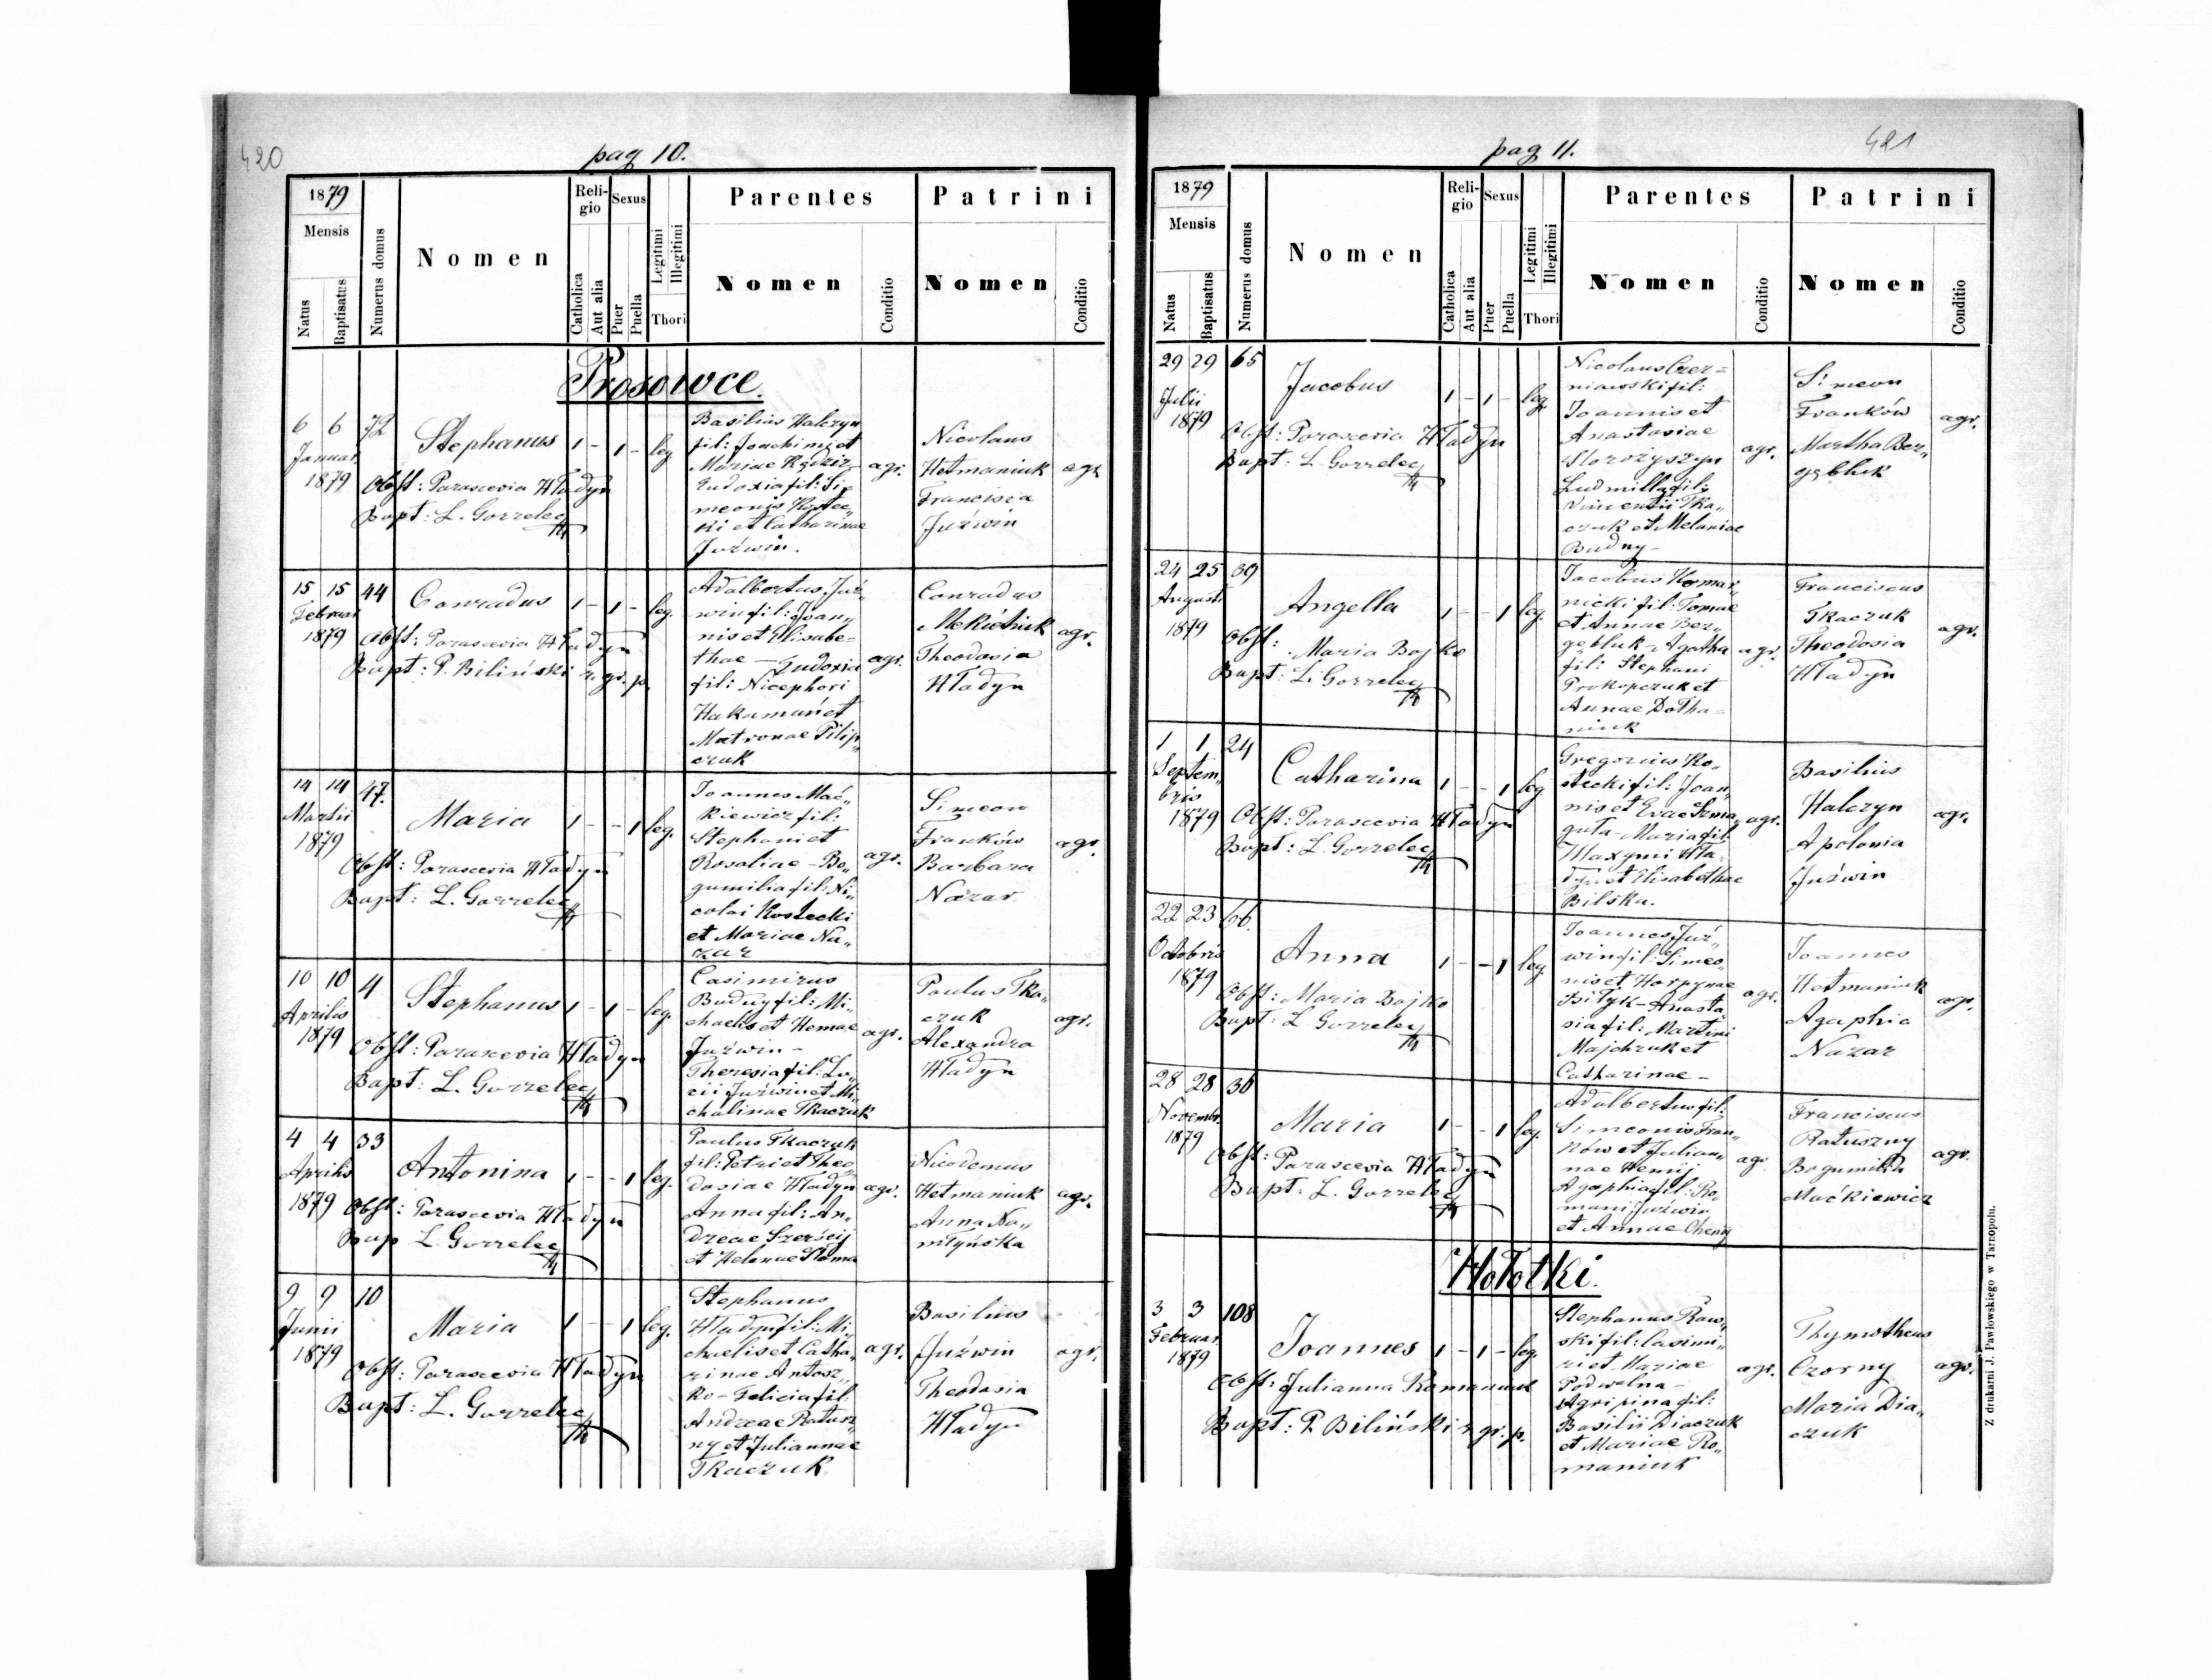 420
pag 10.
1879
Mensis
Natus
Baptisatus
Numerus domus
Nomen
Religio
Catholica
Aut alia
Sexus
Puer
Puella
Legitimi
Illegitimi
Thori
Parentes
Nomen
Conditio
Patrini
Nomen
Conditio
Prosowce.
6 6 72
Januar.
1879
Stephanus 1 - 1 - leg
Obst: Parascevia Hładyn
Bapt: L. Gorzelec
Basilius Halczyn
fil: Joachimi et
Mariae
Eudoxia fil: Si-
meonis Kostec„
ki et Catharinae
Juźwin.
agr.
Nicolaus
Hetmaniuk
Francisca
Juźwin
agr.
15 15 44
Februar.
1879
Conradus 1 - 1 - leg.
Obst: Parascevia Hładyn
Bapt: P. Biliński r. gr. p.
Adalbertus Juź„
win fil: Joan„
nis et Elisabe-
thae - Eudoxia
fil: Nicephori
Hakaman et
Matronae Pilip„
czuk
agr.
Conradus
Theodosia
Hładyn
agr.
14 14 47.
Martii
1879
Maria 1 - - 1 leg.
Obst: Parascevia Hładyn
Bapt: L. Gorzelec
Joannes Mać„
kiewicz fil:
Stephani et
Rosaliae - Bo„
gumilia fil: Ni„
colai Kostecki
et Mariae Na„
zar
agr.
Simeon
Franków
Barbara
Nazar
agr.
10 10 4
Aprilis
1879
Stephanus 1 - 1 - leg.
Obst: Parascevia Hładyn
Bapt: L. Gorzelec
Casimirus
Budny fil: Mi-
chaelis et Hemae
Juźwin -
Theresia fil: Lu„
cii Juźwin et Mi„
chalinae Tkaczuk
agr.
Paulus Tka„
czuk
Alexandra
Hładyn
agr.
4 4 33
Aprilis
1879
Antonina 1 - - 1 leg.
Obst: Parascevia Hładyn
Bap L. Gorzelec
Paulus Tkaczuk
fil: Petri et Theo„
dosiae Hładyn
Anna fil: An„
dreae
et Helenae Słoma
agr.
Nicodemus
Hetmaniuk
Anna Na„
młyńska
agr.
9 9 10
Junii
1879
Maria 1 - - 1 leg.
Obst: Parascevia Hładyn
Bapt: L. Gorzelec
Stephanus
Hładyn fil: Mi„
chaelis et Catha„
rinae Antosz„
ko - Felicia fil:
Andreae Ratusz„
ny et Juliannae
Tkaczuk.
agr.
Basilius
Juźwin
Theodosia
Hładyn
agr.
421
pag 11.
1879
Mensis
Natus
Baptisatus
Numerus domus
Nomen
Religio
Catholica
Aut alia
Sexus
Puer
Puella
Legitimi
Illegitimi
Thori
Parentes
Nomen
Conditio
Patrini
Nomen
Conditio
29 29 65
Julii
1879
Jacobus 1 - 1 - leg
Obst: Parascevia Hładyn
Bapt: L. Gorzelec
Nicolaus Czer=
niawski fil:
Joannis et
Anastasiae
Storożyszyn
Ludmilla fil:
Vincentii Tka„
czuk et Melaniae
Budny -
agr.
Simeon
Franków
Martha Ber„
agr.
24 25 39
Augusti
1879
Angella 1 - - 1 leg.
Obst: Maria Bojko
Bapt: L. Gorzelec
Jacobus Komar„
nicki fil: Tomae
et Annae Ber„
Agatha
fil: Stephani
Prokopczuk et
Annae Dołha=
niuk
agr.
Franciscus
Tkaczuk
Theodosia
Hładyn
agr.
1 1 24
Septem„
bris
1879
Catharina 1 - - 1 leg
Obst: Parascevia Hładyn
Bapt: L. Gorzelec
Gregorius Ko„
stecki fil: Joan„
nis et Evae Szma„
guła - Maria fil:
Maxymi Hła„
dyn et Elisabethae
Bilska.
agr.
Basilius
Halczyn
Apolonia
Juźwin
agr.
22 23 66.
Octobris
1879
Anna 1 - - 1 leg
Obst: Maria Bojko
Bapt: L. Gorzelec
Joannes Juź„
win fil: Simeo„
nis et Harpynae
Biłyk - Anasta„
sia fil: Martini
Majchruk et
Catharinae -
agr.
Joannes
Hetmaniuk
Agaphia
Nazar
agr.
28 28 36
Novembr.
1879
Maria 1 - - 1 leg.
Obst: Parascevia Hładyn
Bapt: L. Gorzelec
Adalbertus fil:
Simeonis Fran„
ków et Julian„
nae Henij
Agaphia fil: Ro„
mani Juźwin
et Annae
agr
Franciscus
Ratuszny
Bogumiła
Maćkiewicz
agr.
Hołotki.
3 3 108
Februar.
1879
Joannes 1 - 1 - leg.
Obst: Julianna Romaniuk
Bapt: P. Biliński r. gr. p.
Stephanus Raw„
ski fil: Casimi„
ri et Mariae
Podwalna -
Agripina fil:
Basilii Diaczuk
et Mariae Ro„
maniuk
agr.
Thymotheus
Czorny
Maria Dia„
czuk
agr.
Z drukarni J. Pawłowskiego w Tarnopolu.